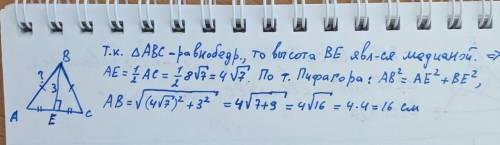 т.к. △ABC-равнобедр., то высота BE явл-ся медианой. ⇒
AE=½AC=½8√7=4√7. По т. Пифагора: AB²=AE²+BE²,
AB=√((4√7)²+3²)=4√(7+9)=4√16=4·4=16 см
B
?
3
A
E
C